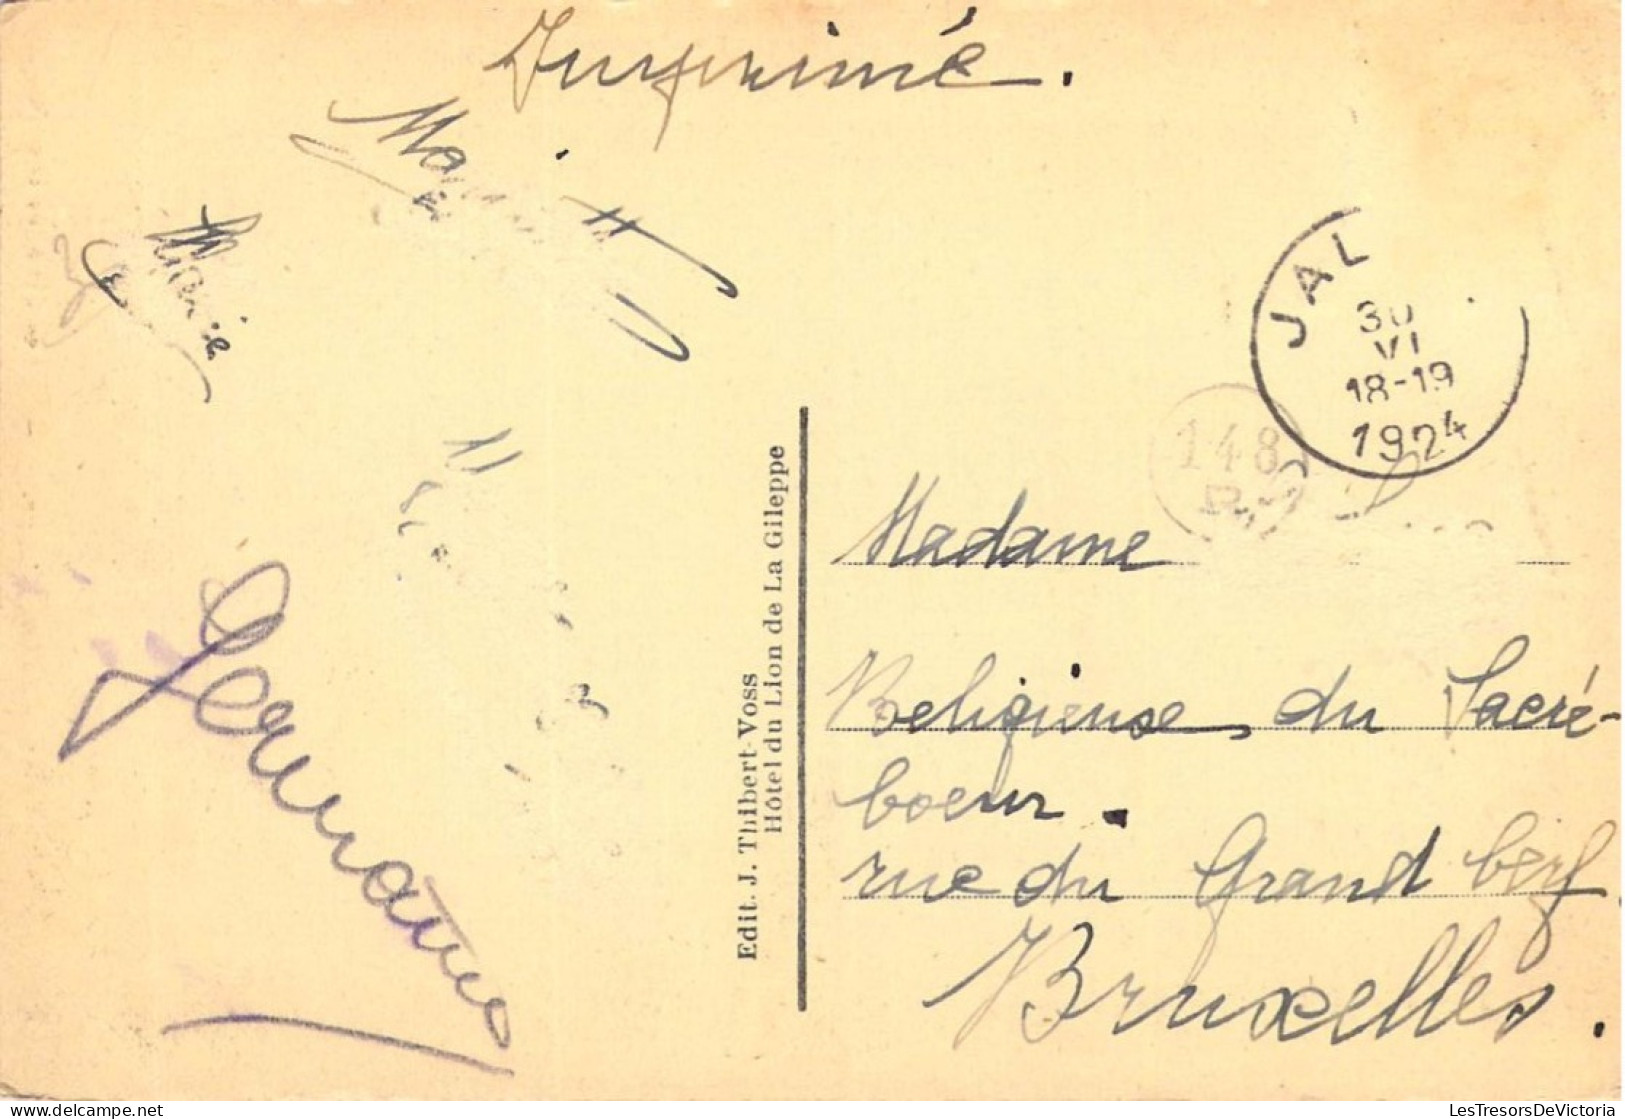 Imprimé.
Marie
Germaine
Edit. J. Thibert-Voss
Hôtel du Lion de La Gileppe
JAL
30
VI
18-19
1924
148
Madame
Religieuse du Sacré-
Coeur.
rue du Grand Cerf
Bruxelles.
LesTresorsDeVictoria
www.delcampe.net